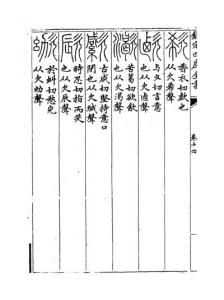 欽定四庫全書
卷十四
香衣切歔也
从欠希聲
與久切言意
也从欠鹵聲
苦葛切欲飲
也从欠渴聲
古咸切堅持意口
閉也从欠緘聲
時忍切指而笑
也从欠辰聲
於蚪切愁皃
从欠幼聲